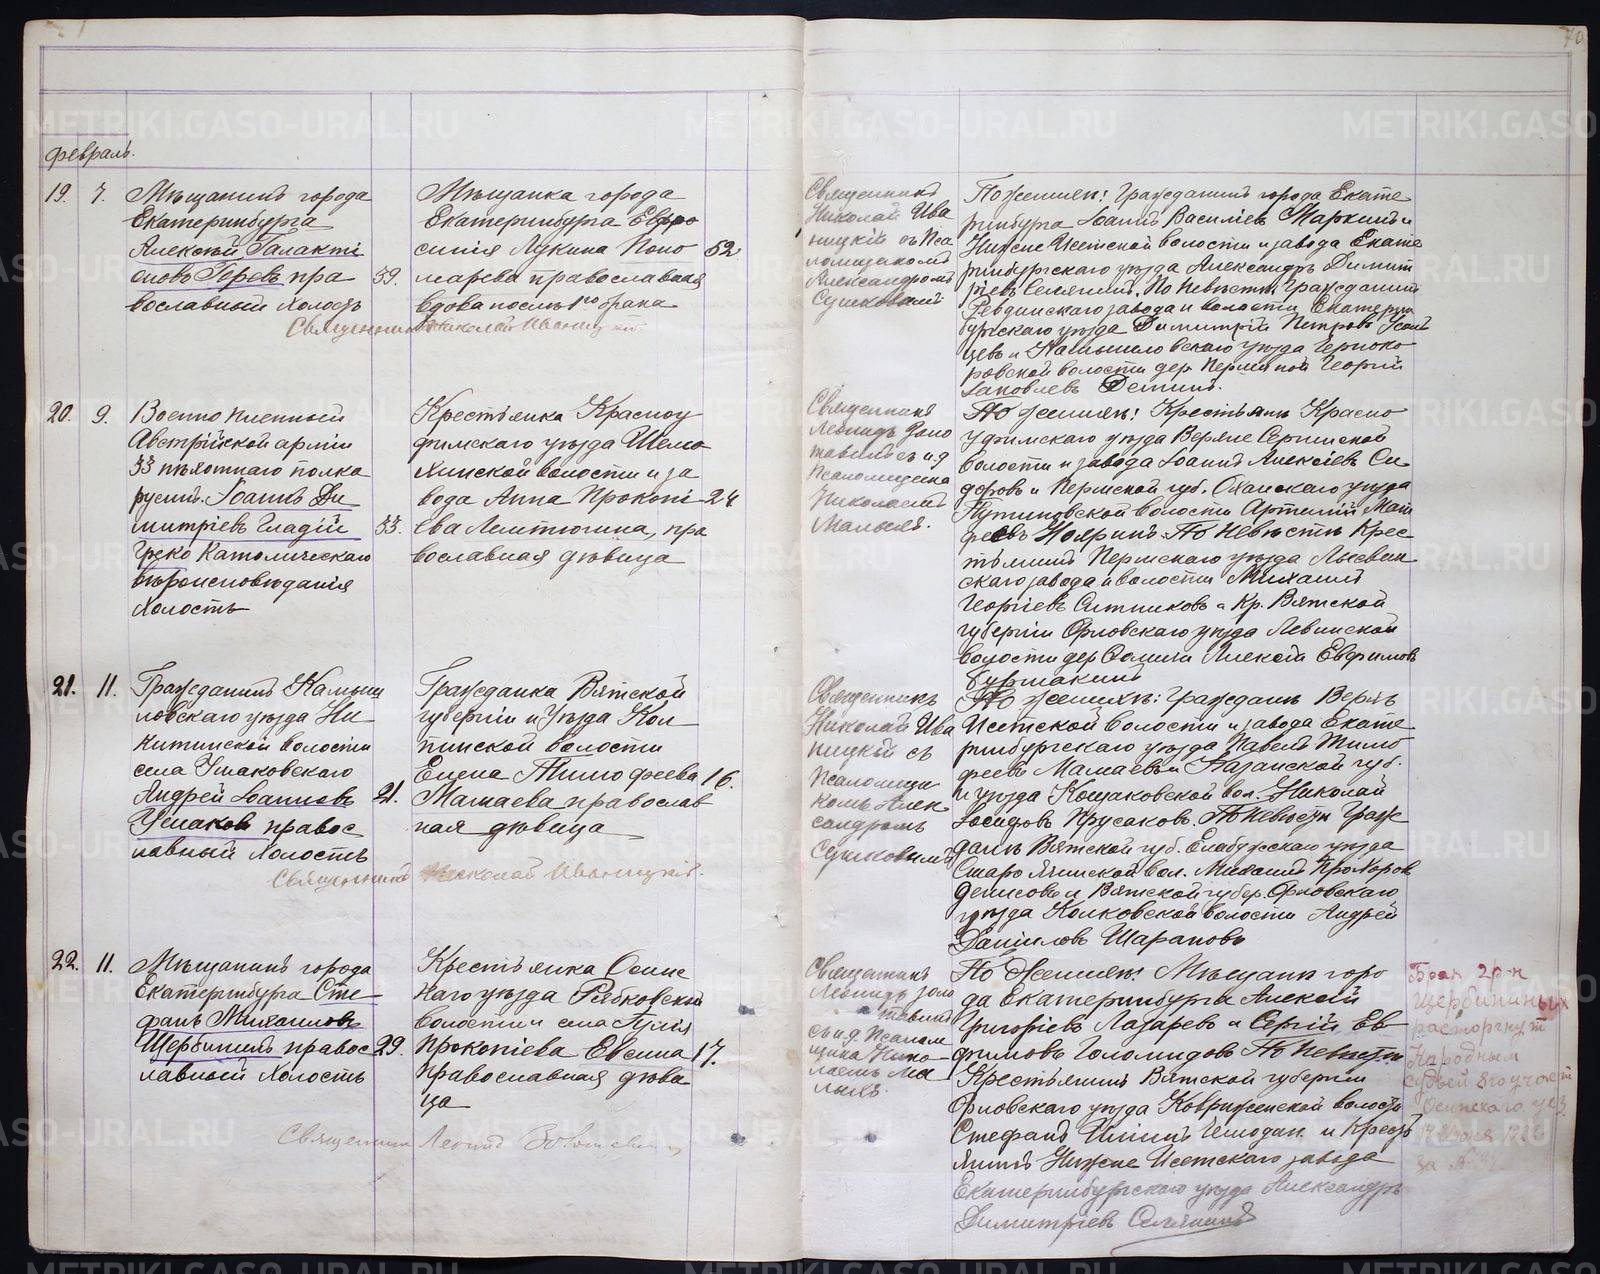 70
Февраль.
19. 7. Мѣщанинъ города
Екатеринбурга
Алексѣй Галакті
оновъ Горевъ пра 39.
вославный холостъ
Мѣщанка города
Екатеринбурга Евфро
синія Лукина Поно 52
марева православная
вдова послѣ 1го брака
Священникъ Николай Иваницкій
Священникъ
Николай Ива
ницкій съ Пса
ломщикомъ
Александромъ
Сушковымъ
По женихѣ: Гражданинъ города Екате
ринбурга Іоаннъ Василіевъ Маркинъ и
Нижне Исетской волости и завода Екате
ринбургскаго уѣзда Александръ Димит
ріевъ Селянинъ. По Невѣстѣ: Гражданинъ
Ревдинскаго завода и волости Екатерин
бургскаго уѣзда Димитрій Петровъ
цевъ и Камышловскаго уѣзда Черноко
ровской волости дер. Георгій
Іаковлевъ
20. 9. Военно пленный
Австрійской арміи
33 пѣхотнаго полка
русинъ Іоаннъ Ди
митріевъ Гладій 33.
Греко Католическаго
вѣроисповѣданія
холостъ
Крестьянка Красноу
фимскаго уѣзда Шема
хинской волости и за
вода Анна Прокопі 24
ева Лентюгина, пра
вославная дѣвица
Священникъ
Леонидъ Золо
товъ и. д.
Псаломщика
Николаемъ
Малыхъ.
По женихѣ: Крестьянъ Красно
уфимскаго уѣзда Верхне Сергинской
волости и завода Іоаннъ Алексіевъ Си
доровъ и Пермской губ. Оханскаго уѣзда
волости Артемій Мат
феевъ По Невѣстѣ Крес
тьянинъ Пермскаго уѣзда Лысвен
скаго завода и волости Михаилъ
Георгіевъ Ситниковъ и Кр. Вятской
губерніи Орловскаго уѣзда Левинской
волости дер Алексѣй Евфимовъ
21. 11. Гражданинъ Камыш
ловскаго уѣзда Ни
китинской волости
села Ушаковскаго
Андрей Іоанновъ 21.
Ушаковъ правос
лавный холостъ
Гражданка Вятской
губерніи и Уѣзда Кол
пинской волости
Елена Тимофеева 16.
Мамаева православ
ная дѣвица
Священникъ Николай Иваницкій.
Священникъ
Николай Ива
ницкій съ
Псаломщи
комъ Алек
сандромъ
Сушковымъ
По женихѣ: Гражданъ Верхъ
Исетской волости и завода Екате
ринбургскаго уѣзда Павелъ Тимо
феевъ Мамаевъ и Казанской губ.
и уѣзда Кощаковской вол. Николай
Іосифовъ Прусаковъ. По невѣстѣ Граж
данъ Вятской губ. Елабужскаго уѣзда
Старо Ячинской вол. Михаилъ Прохоровъ
Денисовъ и Вятской губер. Орловскаго
уѣзда Колковской волости Андрей
Даніиловъ Шараповъ
22. 11. Мѣщанинъ города
Екатеринбурга Сте
фанъ Михаиловъ
Щербининъ правос 29.
лавный холостъ
Крестьянка Осинс
каго уѣзда Рябковской
волости и села Юлія
Прокопіева Евсина 17.
православная дѣви
ца
Священникъ Леонид
Священникъ
Леонидъ Золо
съ и. д. Псалом
щика Нико
лаемъ Ма
лыхъ.
По Женихѣ: Мѣщанинъ горо
да Екатеринбурга Алексѣй
Григоріевъ Лазаревъ и Сергій Ев
фимовъ Голомидовъ По Невѣстѣ:
Крестьянинъ Вятской губерніи
Орловскаго уѣзда волости
Стефанъ и Крест
янинъ Нижне Исетскаго завода
Екатеринбургскаго уѣзда Александръ
Димитріевъ Селянинъ
Брак гр-н
Щербининых
расторгнут
Народным
судьей 8го участ
Осинского уез
за №